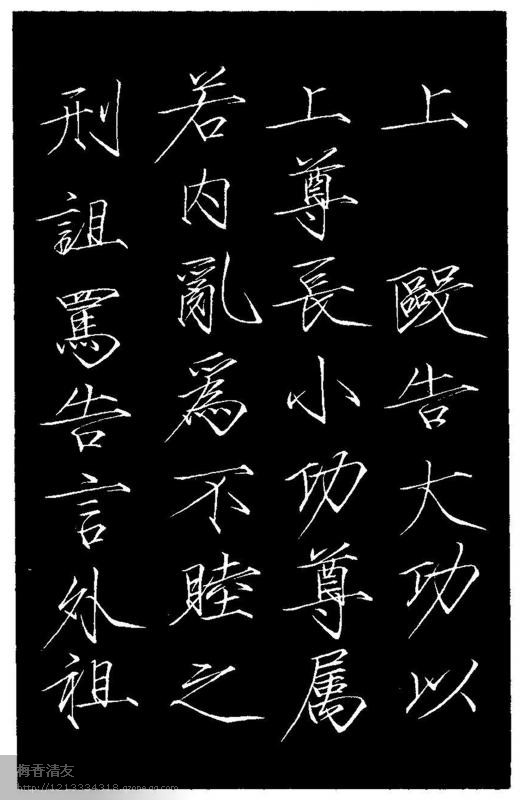 上 毆告大功以
上尊長小功尊属
若內亂為不睦之
刑詛罵告言外祖
梅香清友
http://1213334318.qzone.qq.com